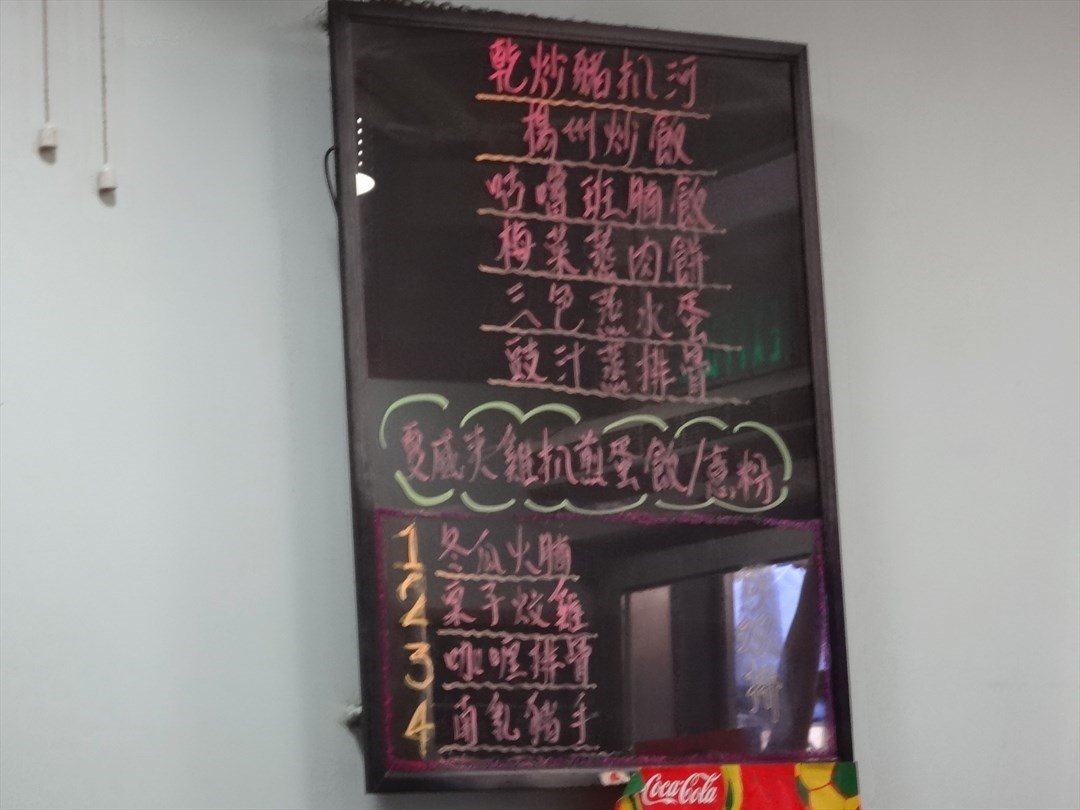 乾炒豬扒河
楊州炒飯
咕嚕班腩飯
梅菜蒸肉餅
三色蒸水蛋
豉汁蒸排骨
夏威夷雞扒煎蛋飯/意粉
1 冬瓜火腩
2 栗子炆雞
3 咖喱排骨
4 南乳豬手
Coca-Cola